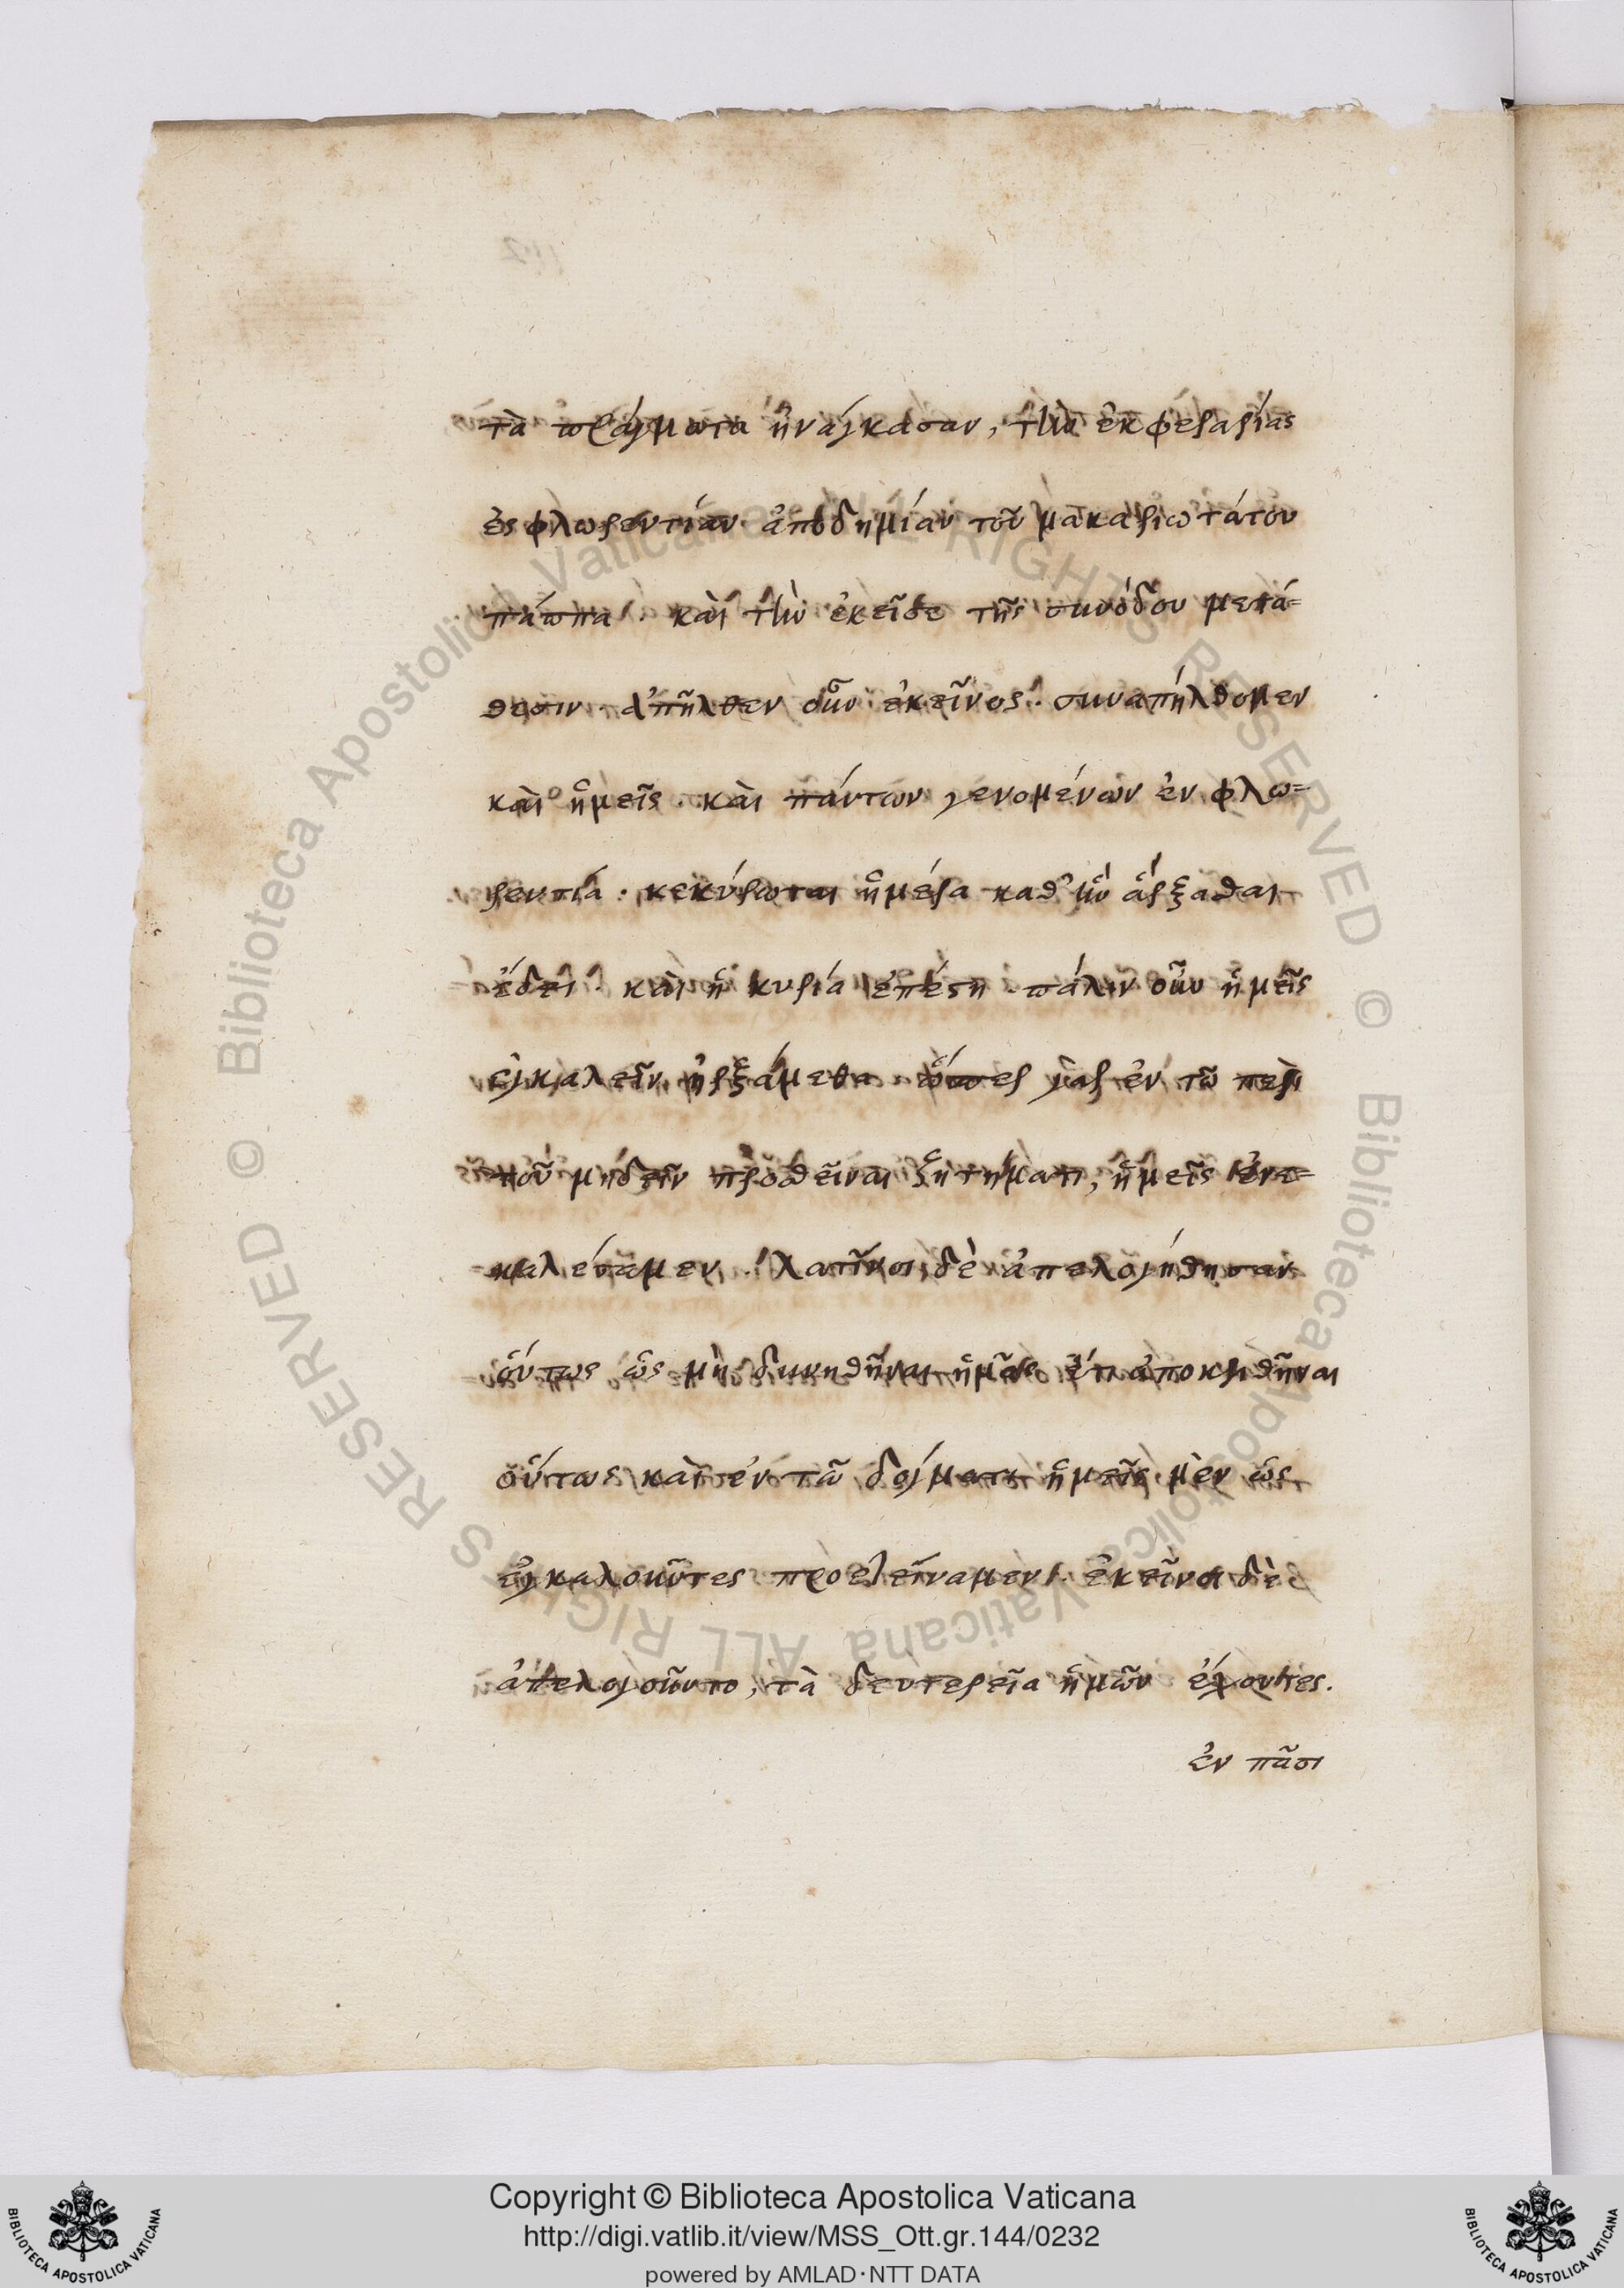 τὰ πράγματα ἠνάγκασαν, τὴν ἐκ φεραρίας
ἐς φλωρεντίαν ἀποδημίαν τοῦ μακαριωτάτου
πάππα · καὶ τὴν ἐκεῖσε τῆς συνόδου μετά=
θεσιν · ἀπῆλθεν οὖν ἐκεῖνος · συναπήλθομεν
καὶ ἡμεῖς · καὶ πάντων γενομένων ἐν φλω=
ρεντία · κεκύρωται ἡμέρα καθ' ἣν ἄρξασθαι
ἔδει · καὶ ἡ κυρία ἐπέστη · πάλιν οὖν ἡμεῖς
ἐγκαλεῖν ἠρξάμεθα · ὥσπερ γὰρ ἐν τῶ περὶ
τοῦ μηδεῖν προσθεῖναι ζητήματι, ἡμεῖς ἐνε=
καλέσαμεν · λατῖνοι δὲ ἀπελογήθησαν
οὕτως ὡς μὴ δυνηθῆναι ἡμᾶς ἔτι ἀποκριθῆναι
οὕτως καὶ ἐν τῶ δόγματι ἡμεῖς μὲν ὡς
ἐγκαλοῦντες · ἐκεῖνοι δὲ
ἀπελογοῦντο, τὰ δευτερεῖα ἡμῶν ἔχοντες.
ἐν πᾶσι
Copyright © Biblioteca Apostolica Vaticana
http://digi.vatlib.it/view/MSS_Ott.gr.144/0232
powered by AMLAD·NTT DATA
BIBLIOTECA APOSTOLICA VATICANA
BIBLIOTECA APOSTOLICA VATICANA
© Biblioteca Apostolica Vaticana ALL RIGHTS RESERVED
© Biblioteca Apostolica Vaticana ALL RIGHTS RESERVED